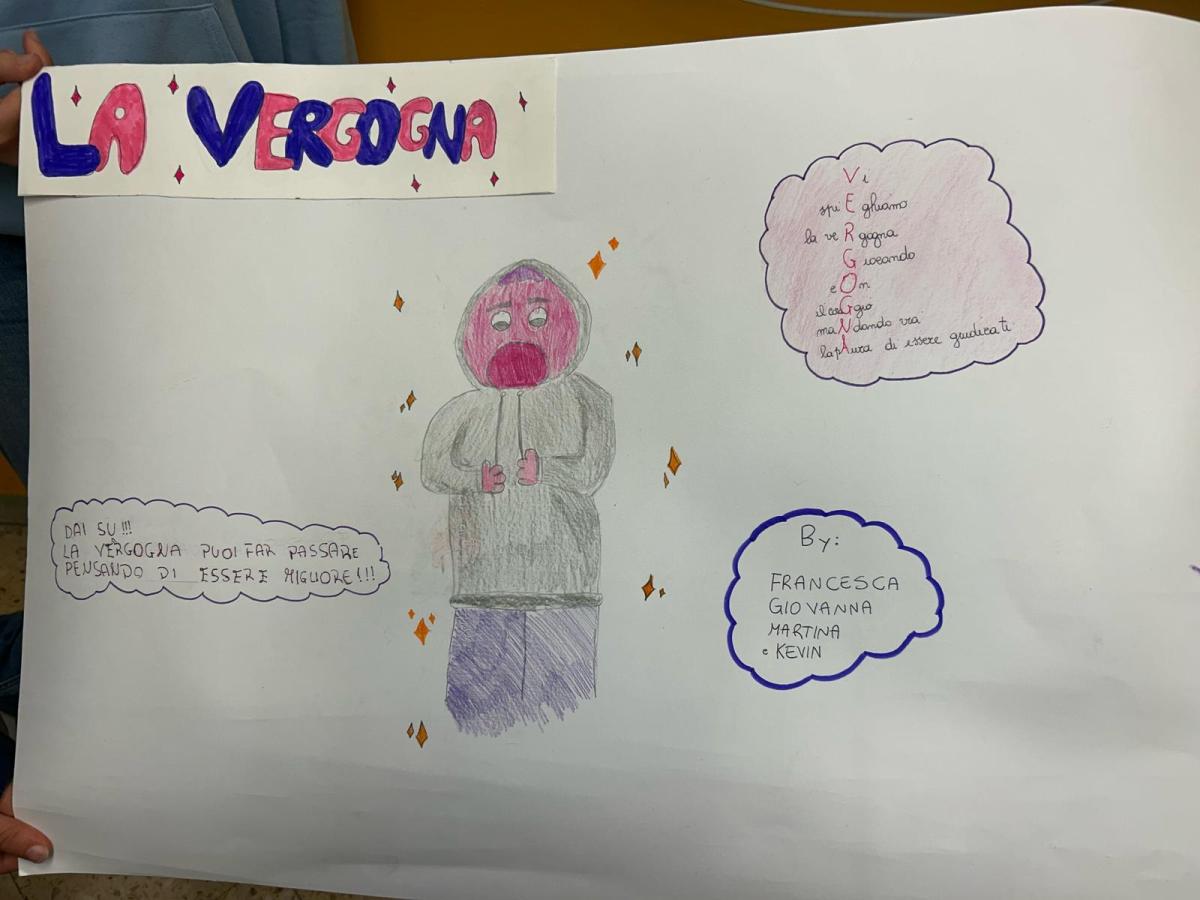 LA VERGOGNA
Vi
spiEghiamo
la veRgogna
Giocando
e On
il coraGgio
maNdando via
la pAura di essere giudicati
DAI SU!!!
LA VERGOGNA PUOI FAR PASSARE
PENSANDO DI ESSERE MIGLIORE!!!
By:
FRANCESCA
GIOVANNA
MARTINA
e KEVIN